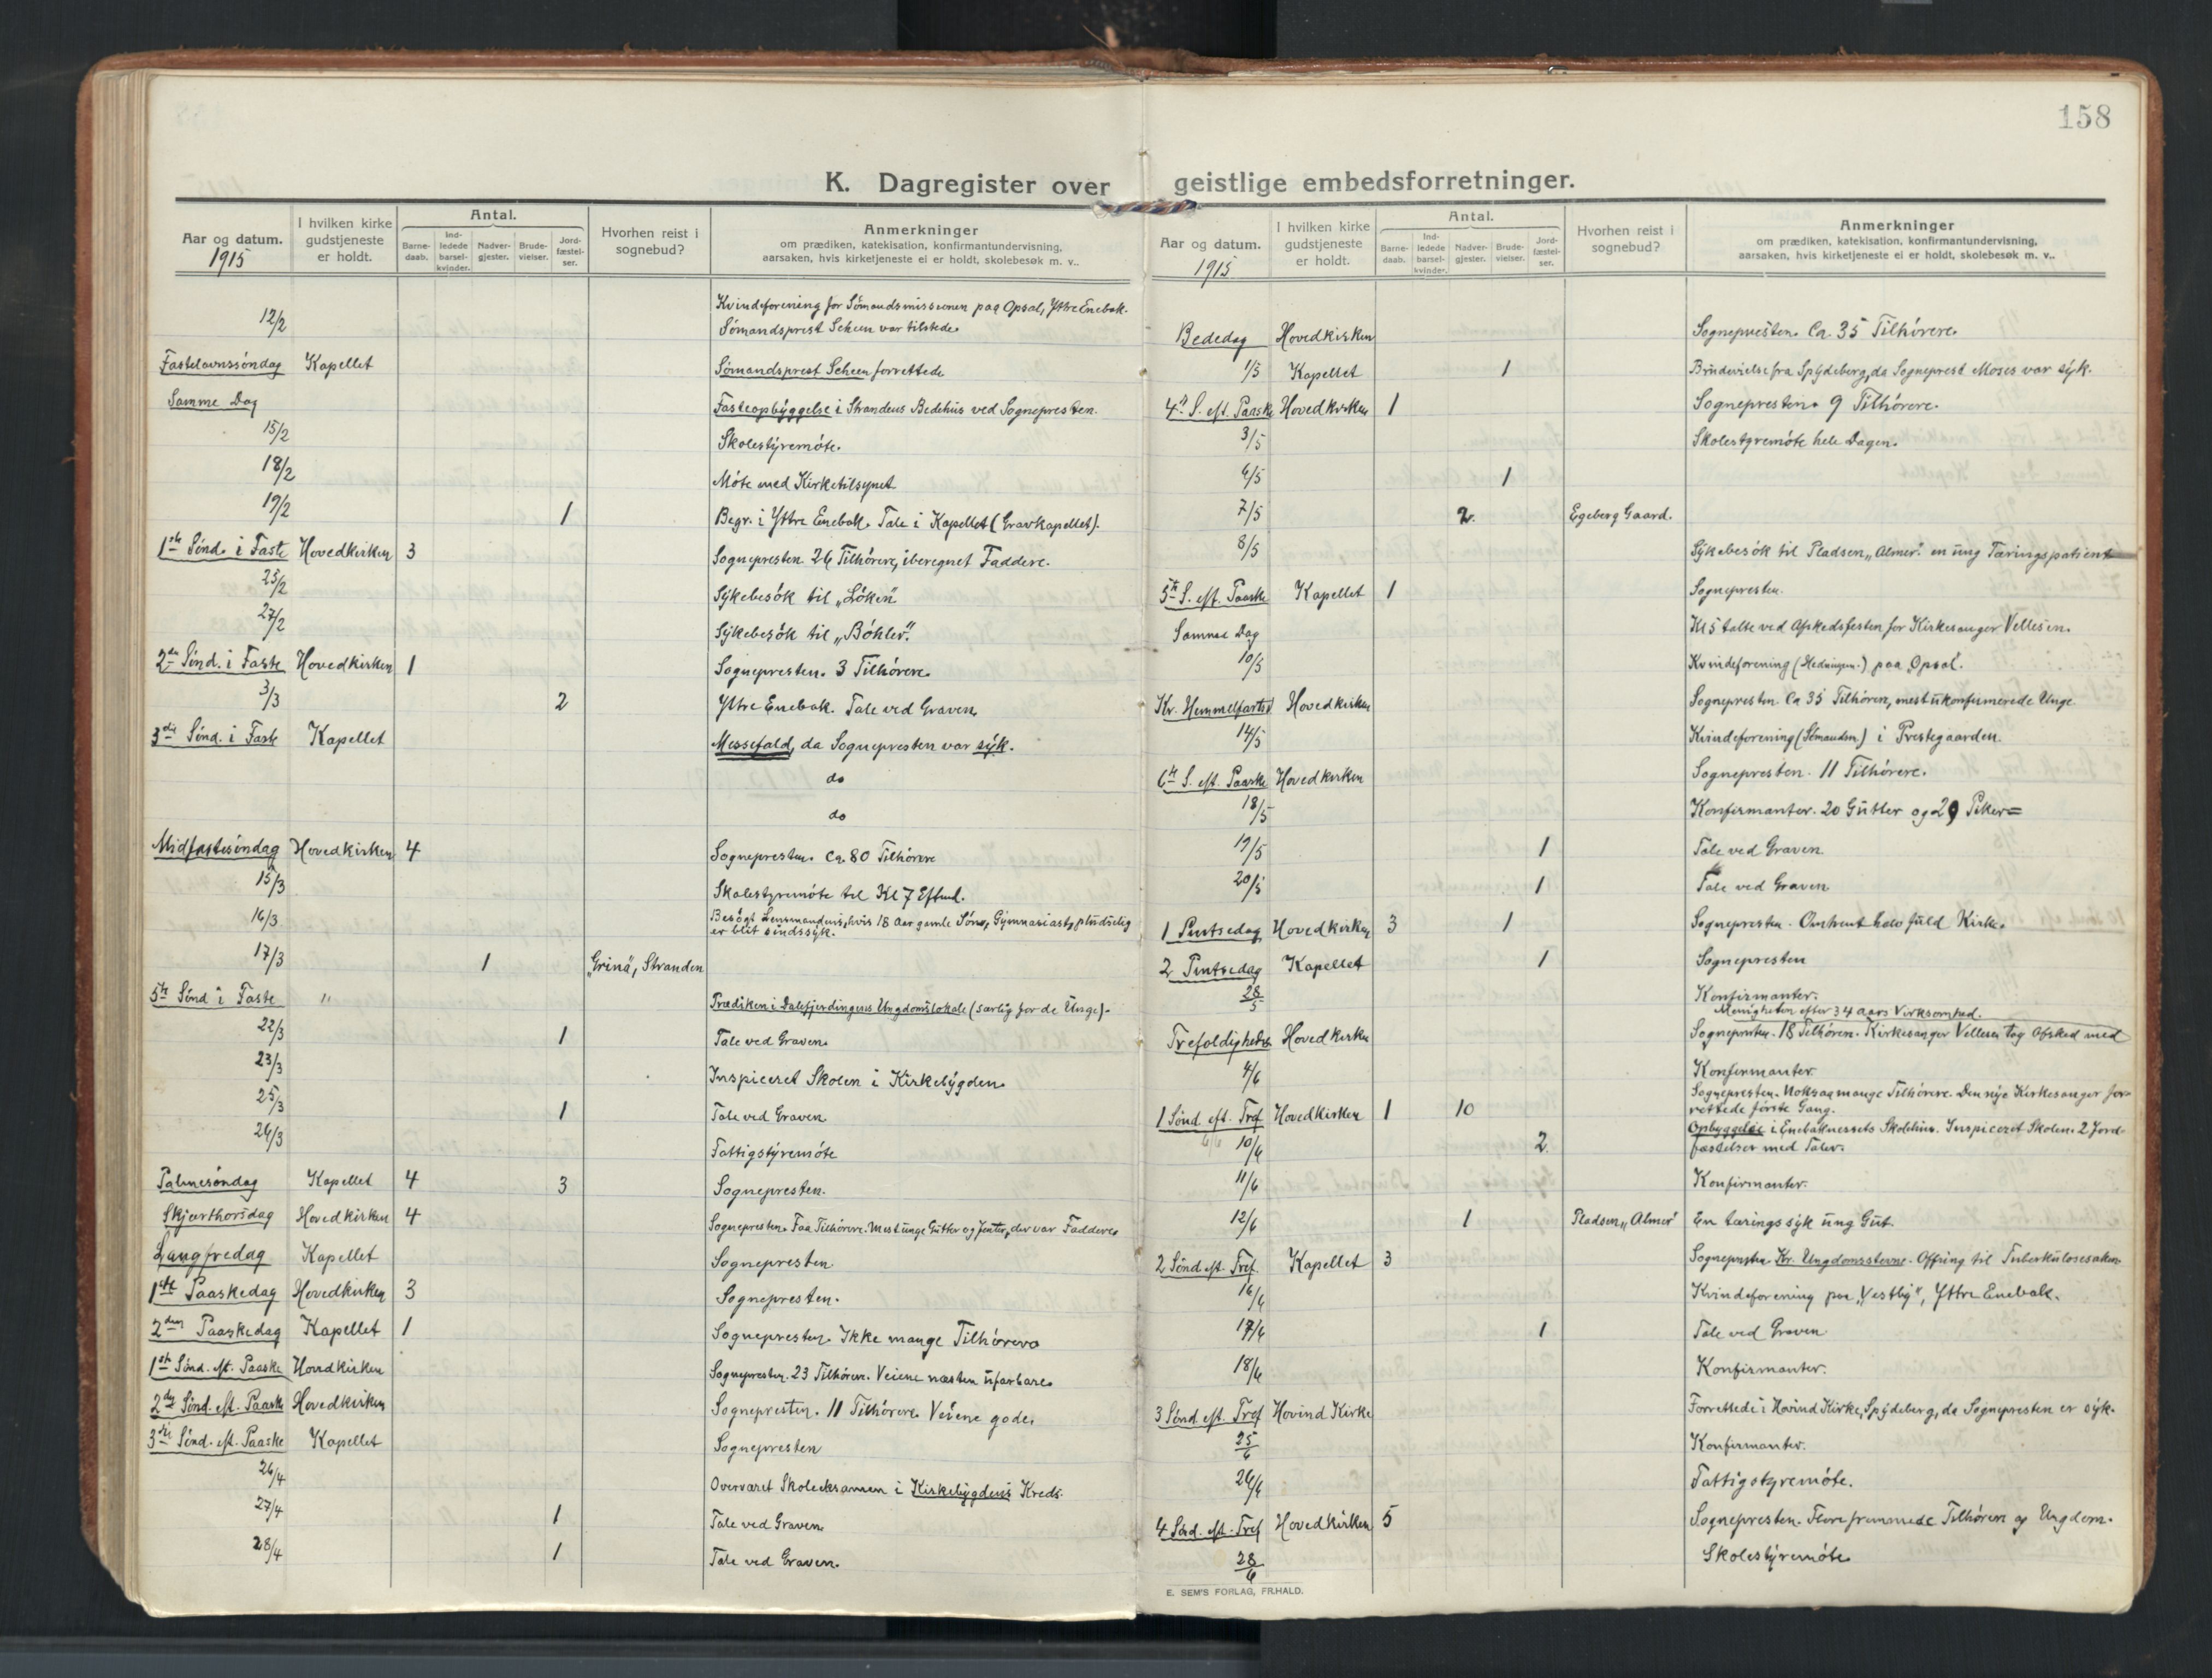 158
K. Dagregister over geistlige embedsforretninger.
Aar og datum. 1915
I hvilken kirke gudstjeneste er holdt.
Antal.
Barne-daab.
Ind-ledede barsel-kvinder.
Nadver-gjester.
Brude-vielser.
Jord-fæstel-ser.
Hvorhen reist i sognebud?
Anmerkninger
om prædiken, katekisation, konfirmantundervisning,
aarsaken, hvis kirketjeneste ei er holdt, skolebesøk m. v..
Kvindeforening for Sømandsmissionen paa Opsal, Ytre Enebak.
12/2 Sømandsprest Scheen var tilstede.
Fastelavnssøndag Kapellet Sømandsprest Scheen forrettede
Samme Dag Fasteopbyggelse i Strandens Bedehus ved Sognepresten.
15/2 Skolestyremøte.
18/2 Møte med Kirketilsynet
19/2 1 Begr. i Yttre Enebak. Tale i Kapellet (Gravkapellet).
1ste Sønd. i Faste Hovedkirken 3 Sognepresten. 26 Tilhørere, iberegnet Faddere.
25/2 Sykebesøk til „Løken"
27/2 Sykebesøk til „Bøhler".
2den Sønd. i Faste Hovedkirken 1 Sognepresten. 3 Tilhørere.
3/3 2 Yttre Enebak. Tale ved Graven
3die Sønd. i Faste Kapellet Messefald, da Sognepresten var syk.
do
do
Midfastesøndag Hovedkirken 4 Sognepresten. Ca. 80 Tilhørere
15/3 Skolestyremøte til Kl 7 Eftmd.
16/3 Besøgt Lensmandens, hvis 18 Aar gamle Søn, Gymnasiast, pludselig
er blit sindssyk.
17/3 1 „Grina", Stranden
5te Sønd i Faste " Prædiken i Dalefjerdingens Ungdomslokale (særlig for de Unge).
22/3 1 Tale ved Graven
23/3 Inspiceret Skolen i Kirkebygden.
25/3 1 Tale ved Graven
26/3 Fattigstyremøte
Palmesøndag Kapellet 4 3 Sognepresten.
Skjærthorsdag Hovedkirken 4 Sognepresten. Faa Tilhørere. Mest unge Gutter og Jenter, der var Faddere.
Langfredag Kapellet Sognepresten
1ste Paaskedag Hovedkirken 3 Sognepresten.
2den Paaskedag Kapellet 1 Sognepresten. Ikke mange Tilhørere
1ste Sønd. eft. Paaske Hovedkirken Sognepresten. 23 Tilhørere. Veiene næsten ufarbare.
2den Sønd. eft. Paaske Hovedkirken Sognepresten. 11 Tilhørere. Veiene gode.
3die Sønd. eft. Paaske Kapellet Sognepresten
26/4 Overværet Skoleeksamen i Kirkebygdens Kreds.
27/4 1 Tale ved Graven
28/4 1 Tale ved Graven.
Aar og datum. 1915
I hvilken kirke gudstjeneste er holdt.
Antal.
Barne-daab.
Ind-ledede barsel-kvinder.
Nadver-gjester.
Brude-vielser.
Jord-fæstel-ser.
Hvorhen reist i sognebud?
Anmerkninger
om prædiken, katekisation, konfirmantundervisning,
aarsaken, hvis kirketjeneste ei er holdt, skolebesøk m. v..
Bededag Hovedkirken Sognepresten. Ca. 35 Tilhørere.
1/5 Kapellet 1 Brudevielse fra Spydeberg, da Sogneprest Moses var syk.
4de S. eft. Paaske Hovedkirken 1 Sognepresten. 9 Tilhørere.
3/5 Skolestyremøte hele Dagen.
6/5 1
7/5 2 Egeberg Gaard.
8/5 Sykebesøk til Pladsen „Almer". en ung Tæringspatient
5te S. eft. Paaske Kapellet 1 Sognepresten.
Samme Dag Kl 5 talte ved Afskedsfesten for Kirkesanger Vellesen.
10/5 Kvindeforening (Hedningem.) paa Opsal.
Kr. Himmelfartsd Hovedkirken Sognepresten. Ca 35 Tilhørere, mest ukonfirmerede Unge.
14/5 Kvindeforening (Sømandsm.) i Prestegaarden.
6te S. eft. Paaske Hovedkirken Sognepresten. 11 Tilhørere.
18/5 Konfirmanter. 20 Gutter og 29 Piker=
19/5 1 Tale ved Graven.
20/5 1 Tale ved Graven
1 Pintsedag Hovedkirken 3 1 Sognepresten. Omtrent halv fuld Kirke.
2 Pintsedag Kapellet 1 Sognepresten
28/5 Konfirmanter.
Menigheten efter 34 Aars Virksomhed.
Trefoldigheds Hovedkirken Sognepresten. 18 Tilhørere. Kirkesanger Vellesen tog Afsked med
4/6 Konfirmanter.
Sognepresten. Noksaa mange Tilhørere. Den nye Kirkesanger for-
1 Sønd. eft. Tref Hovedkirken 1 10 rettede første Gang.
10/6 2 Opbyggelse i Enebaknessets Skolehus. Inspiceret Skolen. 2 Jord-
fæstelser med Taler.
11/6 Konfirmanter.
12/6 1 Pladsen „Almer" En tæringssyk ung Gut.
2 Sønd eft. Tref Kapellet 3 Sognepresten. Kr. Ungdomsstevne. Offring til Tuberkulosesaken
16/6 Kvindeforening paa „Vestby", Yttre Enebak.
17/6 1 Tale ved Graven
18/6 Konfirmanter.
3 Sønd. eft. Tref Hovind Kirke Forrettede i Hovind Kirke, Spydeberg, da Sognepresten er syk.
25/6 Konfirmanter.
26/6 Fattigstyremøte.
4 Sønd. eft. Tref Hovedkirken 5 Sognepresten. Flere fremmede Tilhørere og Ungdom.
28/6 Skolestyremøte
E. SEM'S FORLAG, FR.HALD.